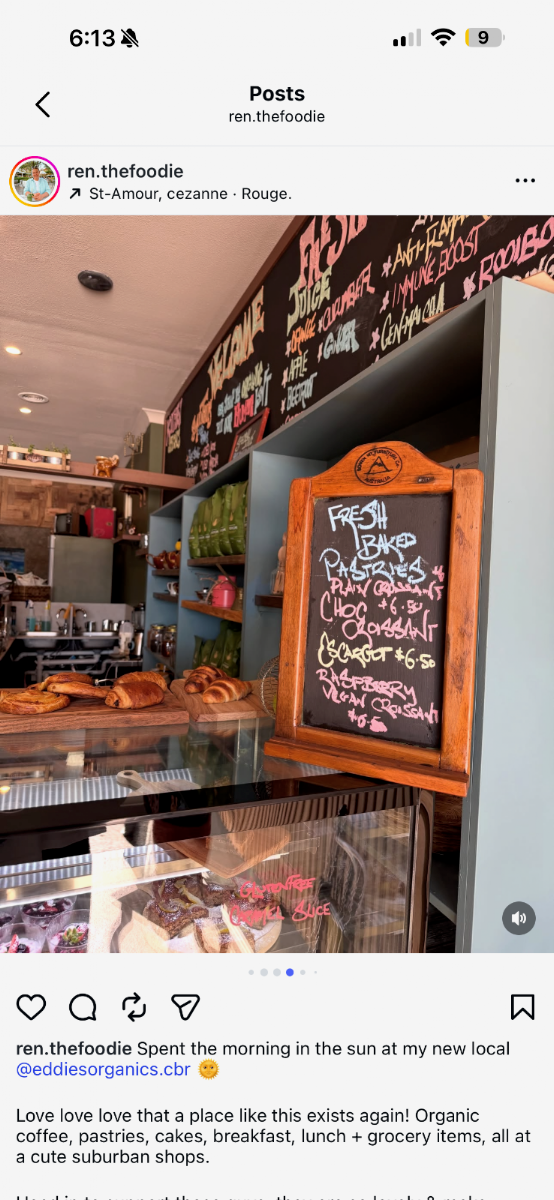 6:13
9
Posts
ren.thefoodie
ren.thefoodie
St-Amour, cezanne · Rouge.
FRESH
JUICE
ORANGE
CUCUMBER
APPLE
GINGER
BEETROOT
WELCOME
IMMUNE BOOST
ROOIBO
AUSTRALIA
FRESH
BAKED
PASTRIES
PLAIN CROISSANT
CHOC
CROISSANT
ESCARGOT $6.50
RASPBERRY
VEGAN CROISSANT
GLUTEN FREE
CARAMEL SLICE
ren.thefoodie Spent the morning in the sun at my new local
@eddiesorganics.cbr 🌞
Love love love that a place like this exists again! Organic
coffee, pastries, cakes, breakfast, lunch + grocery items, all at
a cute suburban shops.